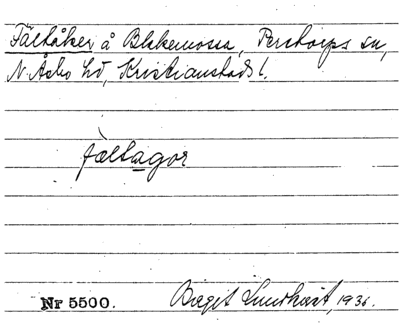 Fältåker å Blekemossa, Perstorps sn,
N. Åsbo hd, Kristianstads l.
fæltagor
Nr 5500.
Birgit Lundkvist, 1936.